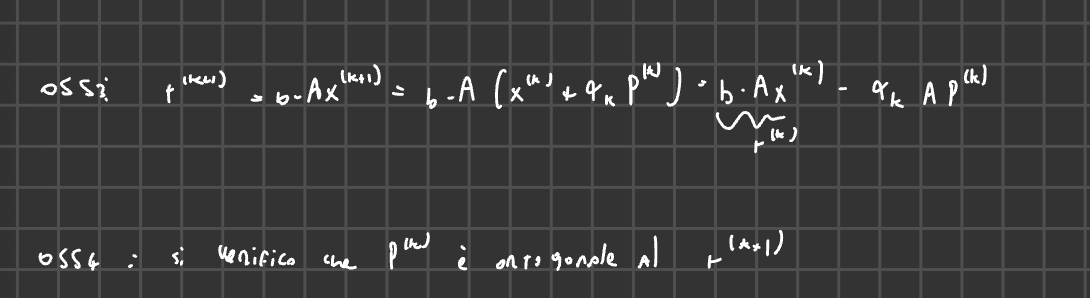 OSS3: r^(k+1) = b - Ax^(k+1) = b - A (x^(k) + α_k P^(k)) = b - Ax^(k) - α_k A P^(k)
r^(k)
OSS4 : si verifica che P^(k) è ortogonale al r^(k+1)